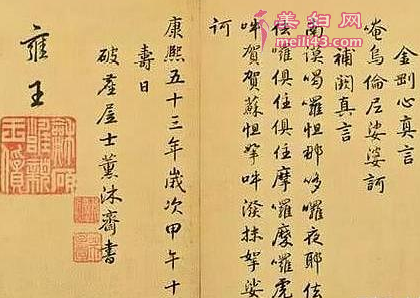 美妇网
金剛心真言
唵烏倫尼娑婆訶
補闕真言
南謨喝囉怛那哆囉夜耶佉
佉囉俱住俱住摩囉摩囉虎
吽賀賀蘇怛拏吽潑抹拏娑
訶
康熙五十三年歲次甲午十
壽日
破塵居士薰沐齋書
雍王